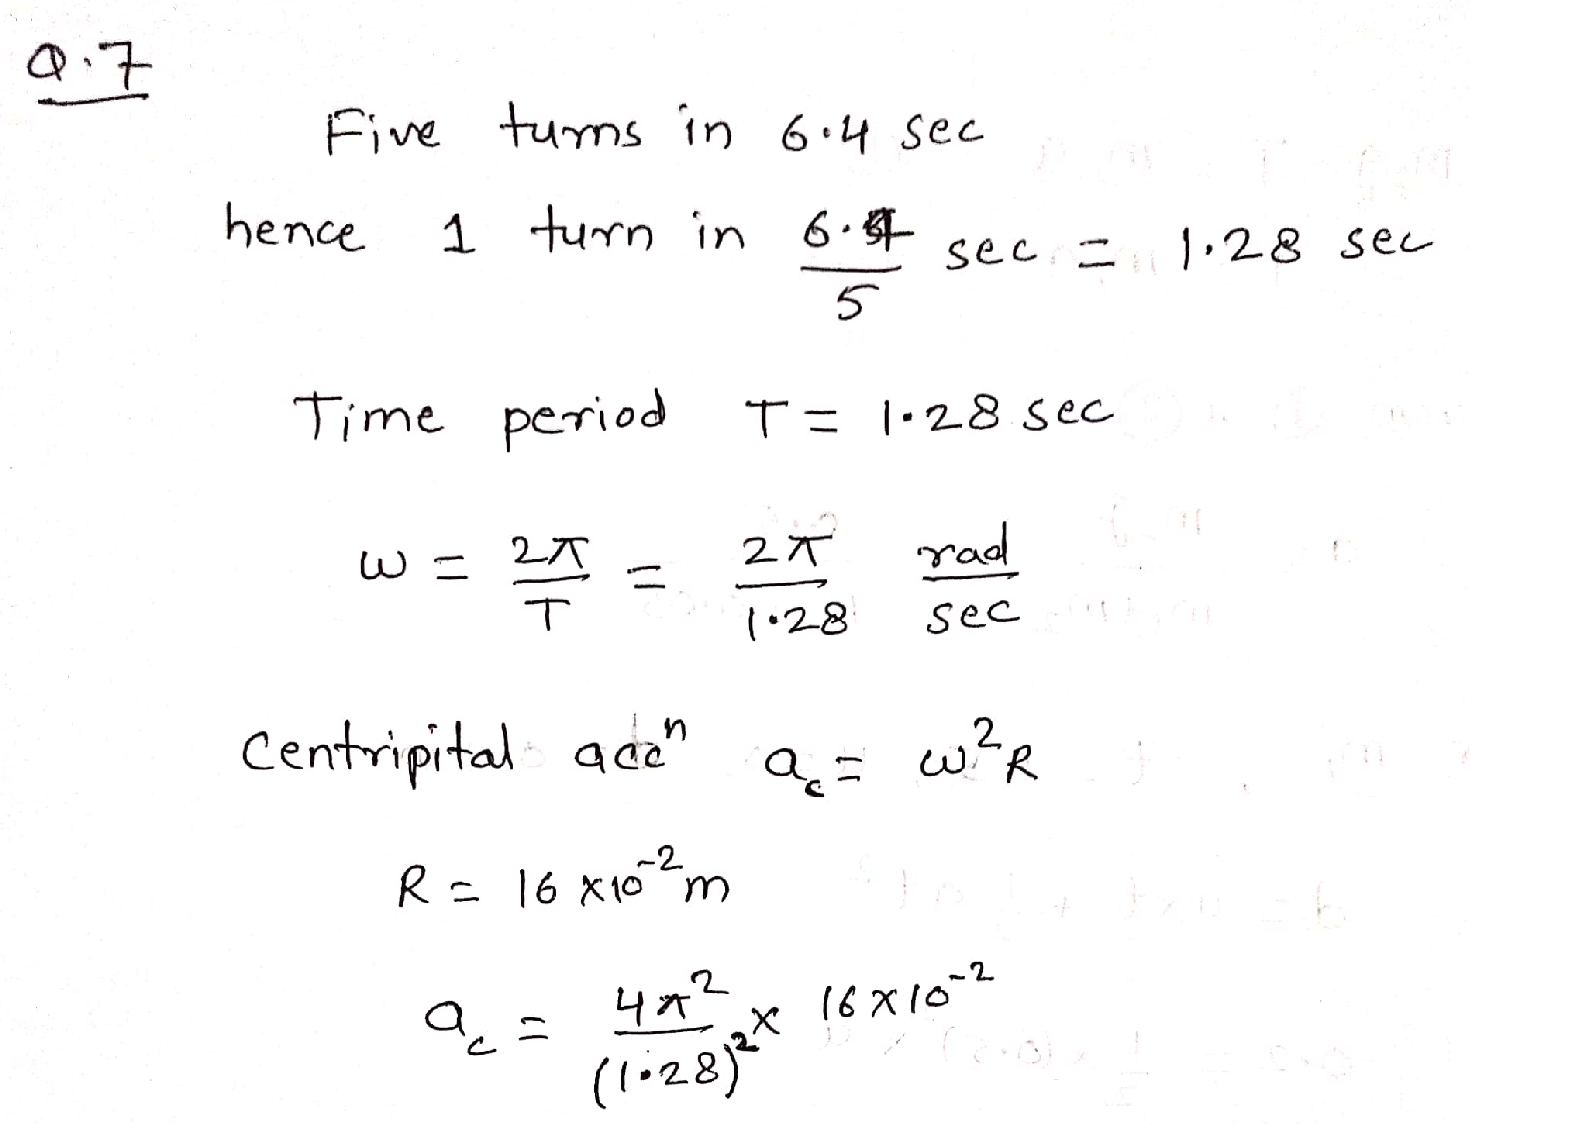 Q.7
Five turns in 6.4 sec
hence 1 turn in 6.4/5 sec = 1.28 sec
Time period T = 1.28 sec
ω = 2π/T = 2π/1.28 rad/sec
Centripital accⁿ a_c = ω²R
R = 16 × 10⁻² m
a_c = 4π²/(1.28)² × 16 × 10⁻²